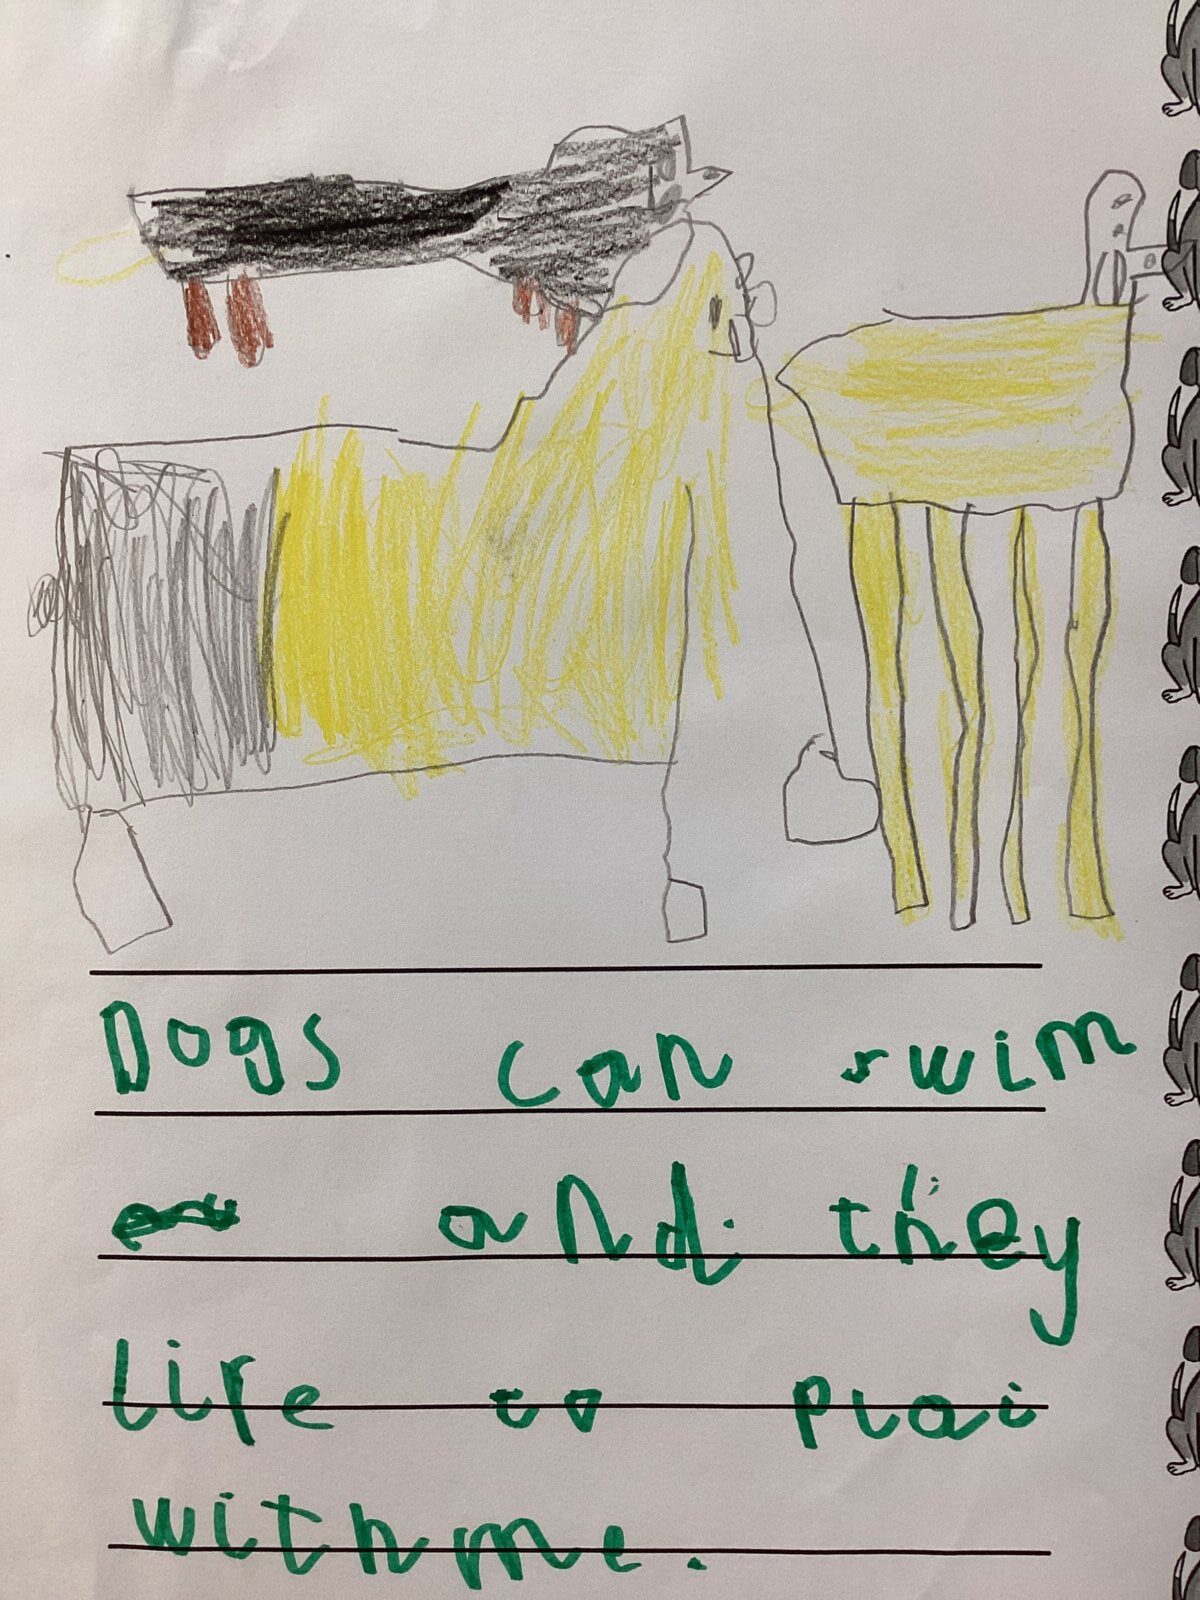 Dogs can swim
and they
like to plai
with me.